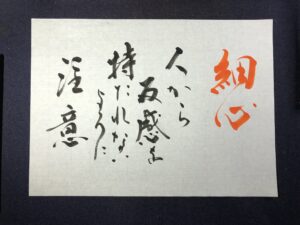 細心
人から
反感を
持たれない
ように
注意